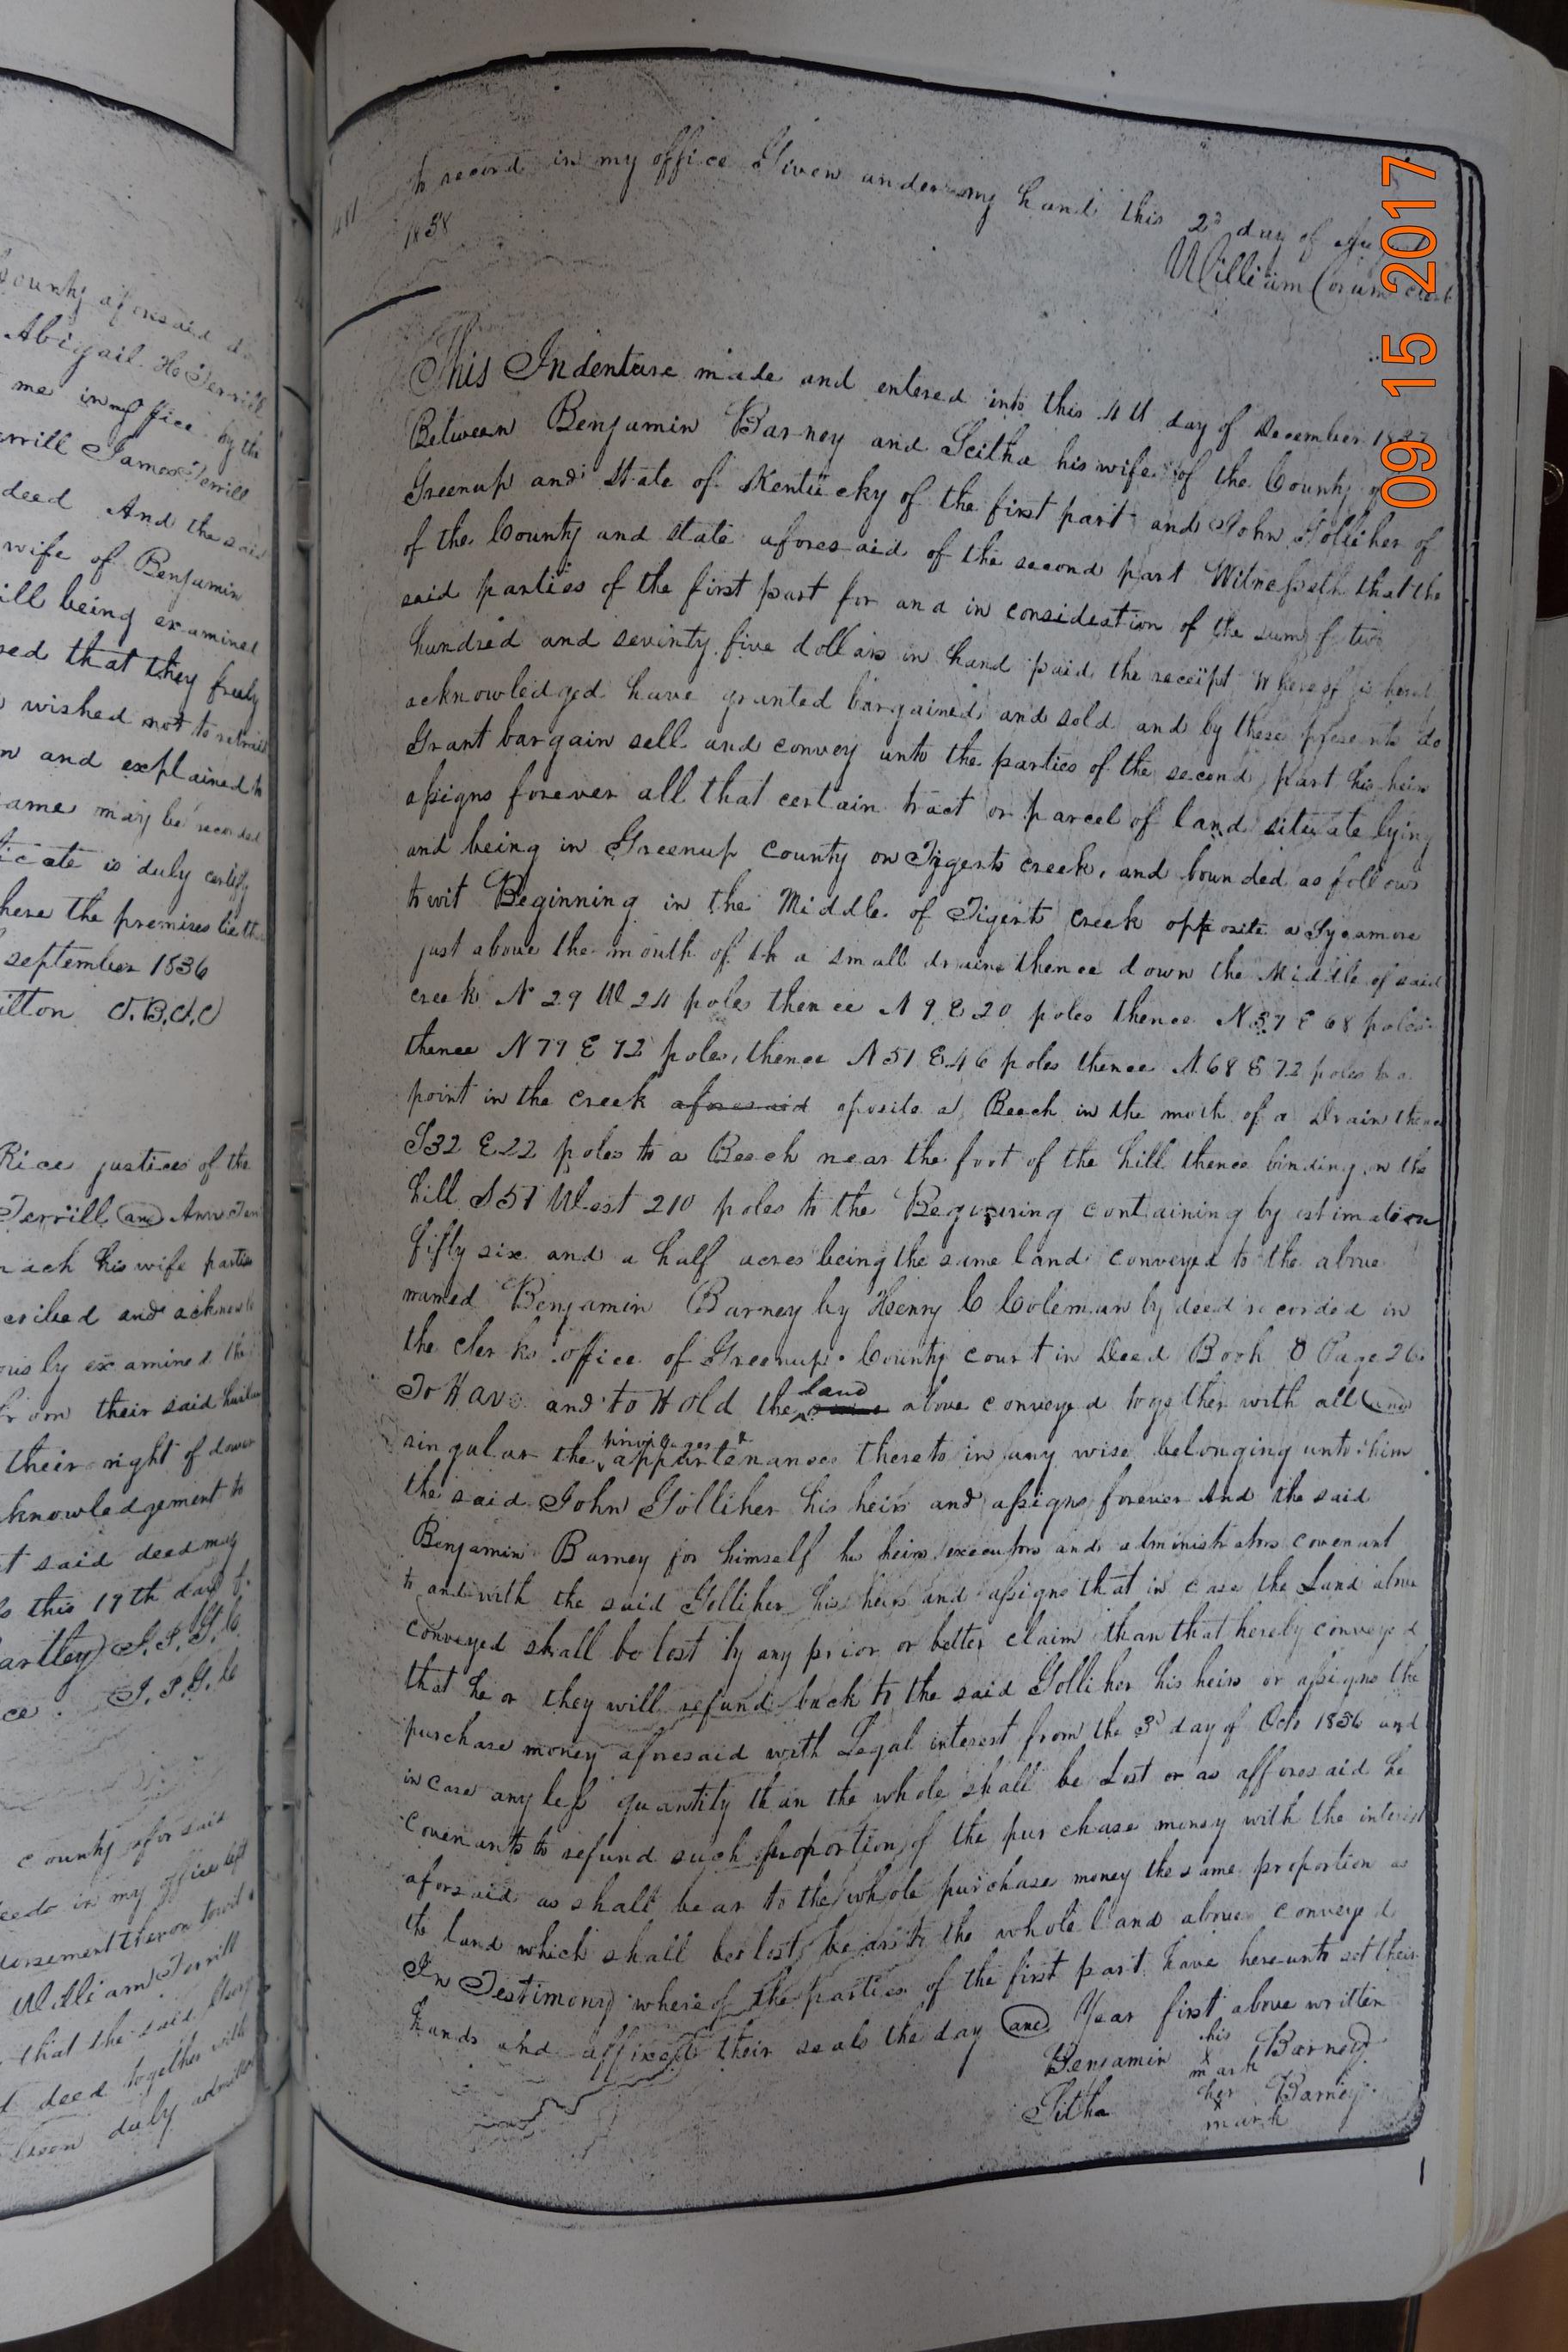 County aforesaid do
Abigail Ho Terrill
me in my office by the
errill James Terrill
deed And the said
wife of Benjamin
ill being examined
red that they freely
wished not to retract
n and explained to
same may be recorded
icate is duly certify
here the premises lie
september 1836
ilton
Rice justices of the
Terrill and Ann
ach his wife parties
cribed and acknow
ously examined the
from their said
their right of dower
knowledgement to
t said deed may
s this 19th day of
artley J. P. G. C
ce. J. P. G. C
County afor said
eeds in my office left
dorsement thereon towit
William Terrill
that the said
deed together with
been duly
to record in my office Given under my hand this 2d day of
1838
William Corum clerk
This Indenture made and entered into this 4th day of December 1837
Between Benjamin Barney and Seitha his wife of the County of
Greenup and State of Kentucky of the first part and John Golliher of
of the County and State aforesaid of the second part Witnesseth that the
said parties of the first part for and in consideation of the sum of two
hundred and seventy five dollars in hand paid the receipt whereof is
acknowledged have granted bargained and sold and by these presents do
Grant bargain sell and convey unto the parties of the second part his heirs
assigns forever all that certain tract or parcel of land situate lying
and being in Greenup County on Tygerts creek, and bounded as follows
to wit Beginning in the Middle of Tigerts Creek opposite a Sycamore
just above the mouth of th a small drain thence down the Middle of said
creek N 29 W 24 poles thence N 9 E 20 poles thence N 37 E 68 poles
thence N 79 E 72 poles, thence N 51 E 46 poles thence N 68 E 72 poles to a
point in the creek aforesaid oposite a Beech in the moth of a Drain thence
S32 E22 poles to a Beech near the foot of the hill thence binding on the
hill S 51 West 210 poles to the Beginning containing by estimation
fifty six and a half acres being the same land conveyed to the above
named Benjamin Barney by Henry C Coleman by deed recorded in
the clerks office of Greenup County court in Deed Book Page 26
To Have and to Hold the land above conveyed together with all and
singular the privileges & appurtenances thereto in any wise belonging unto him
the said John Golliher his heirs and assigns forever And the said
Benjamin Barney for himself his heirs executors and administrators covenant
to and with the said Golliher his heirs and assigns that in case the Land above
conveyed shall be lost by any prior or better claim than that hereby conveyed
that he or they will refund back to the said Golliher his heirs or assigns the
purchase money aforesaid with Legal interest from the 3d day of Octo 1836 and
in case any less quantity than the whole shall be Lost or as afforesaid he
covenants to refund such proportion of the purchase money with the interest
aforsaid as shall bear to the whole purchase money the same proportion as
the land which shall be lost bears to the whole land above conveyed
In Testimony whereof the parties of the first part have hereunto set their
hands and affixed their seals the day and Year first above written
Benjamin his x mark Barney
Titha her x mark Barney
09 15 2017